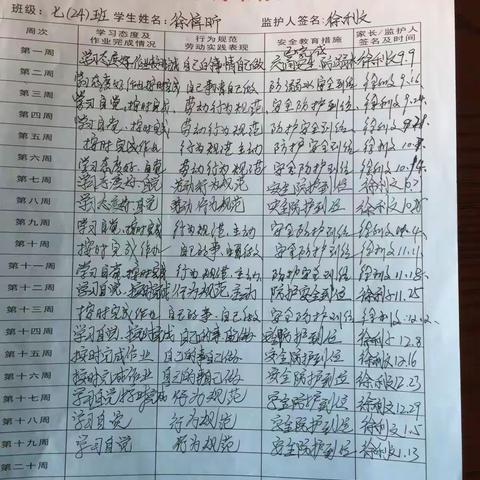 班级：七(24)班 学生姓名：徐 昕 监护人签名：徐利文
周次 学习态度及作业完成情况 行为规范劳动实践表现 安全教育措施 家长/监护人签名及时间
第一周 学习态度好 自己的事情自己做 交通安全 防溺水 徐利文9.9
第二周 学习态度好 自己事自己做 防溺水安全到位 徐利文9.16
第三周 学习自觉、按时完成 劳动行为规范 安全防护到位 徐利文9.24
第四周 学习自觉、按时完成 劳动行为规范 防护安全到位 徐利文
第五周 按时完成作业 行为规范主动 防护安全到位 徐利文10.
第六周 学习态度好、自觉 劳动行为规范 安全防护到位 徐利文10.14
第七周 学习态度好、自觉 劳动行为规范 安全防护到位 徐利文
第八周 学习态度好 自觉 劳动行为规范 安全防护到位 徐利文10.28
第九周 学习自觉、按时完成 行为规范、主动 安全防护到位 徐利文
第十周 按时完成作业 自己的事自己做 安全防护到位 徐利文11.11
第十一周 学习自觉、按时完成 行为规范、主动 防护安全到位 徐利文11.18
第十二周 学习自觉、按时完成 行为规范 主动 防护安全到位 徐利文11.25
第十三周 按时完成作业 自己的事、自己做 安全防护到位 徐利文
第十四周 学习自觉、按时完成 自己的事自己做 安全防护到位 徐利文12.8
第十五周 按时完成作业 自己的事自己做 安全防护到位 徐利文12.16
第十六周 按时完成作业 自己的事自己做 安全防护到位 徐利文12.23
第十七周 学习态度好 按时完成 行为规范 安全防护到位 徐利文12.29
第十八周 学习自觉 行为规范 安全防护到位 徐利文1.5
第十九周 学习自觉 行为规范 安全防护到位 徐利文1.13
第二十周